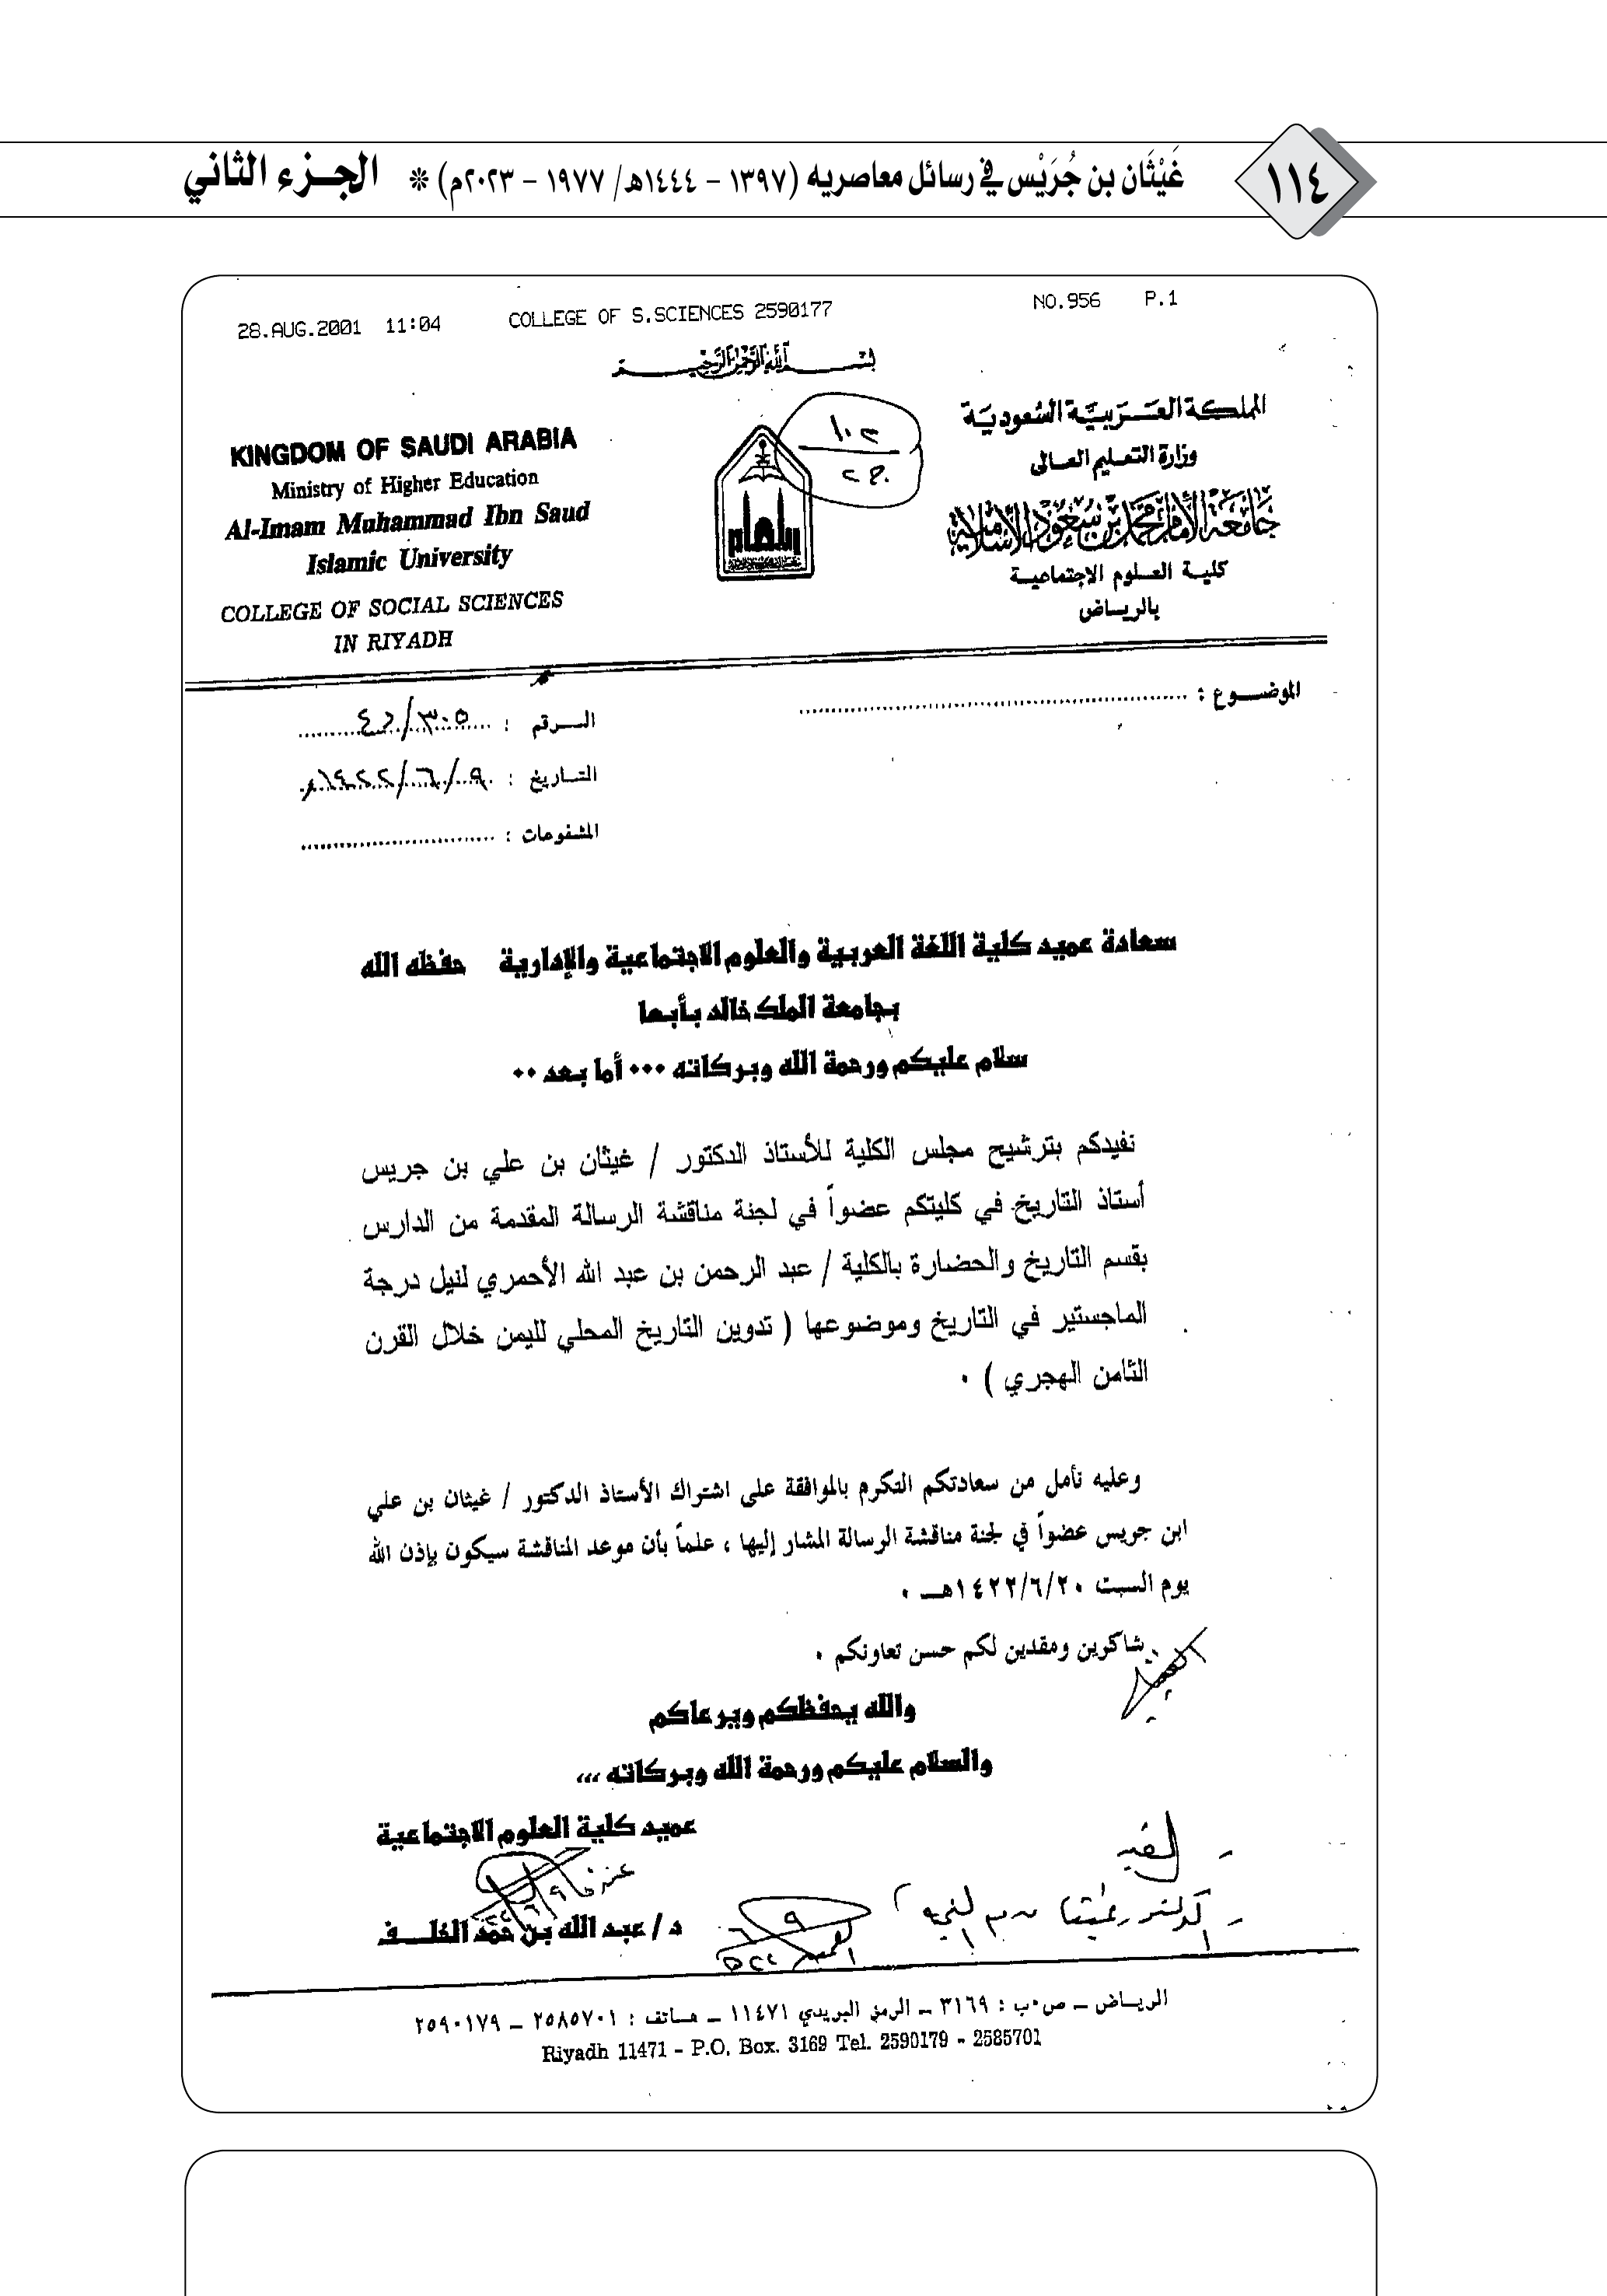 ١١٤
غَيْثَان بن جُرَيْس في رسائل معاصريه (١٣٩٧ - ١٤٤٤هـ/ ١٩٧٧ - ٢٠٢٣م) * الجزء الثاني
28.AUG.2001 11:04 COLLEGE OF S.SCIENCES 2590177 NO.956 P.1
بسم الله الرحمن الرحيم
المملكة العربية السعودية
وزارة التعليم العالى
جامعة الإمام محمد بن سعود الإسلامية
كلية العلوم الاجتماعية
بالرياض
KINGDOM OF SAUDI ARABIA
Ministry of Higher Education
Al-Imam Muhammad Ibn Saud
Islamic University
COLLEGE OF SOCIAL SCIENCES
IN RIYADH
الموضوع :
الرقم : ٣٠٥/٤٢
التاريخ : ٩/٦/١٤٢٢هـ
المشفوعات :
سعادة عميد كلية اللغة العربية والعلوم الاجتماعية والإدارية حفظه الله
بجامعة الملك خالد بأبها
سلام عليكم ورحمة الله وبركاته ٠٠٠ أما بعد ٠٠
نفيدكم بترشيح مجلس الكلية للأستاذ الدكتور / غيثان بن علي بن جريس
أستاذ التاريخ في كليتكم عضواً في لجنة مناقشة الرسالة المقدمة من الدارس
بقسم التاريخ والحضارة بالكلية / عبد الرحمن بن عبد الله الأحمري لنيل درجة
الماجستير في التاريخ وموضوعها ( تدوين التاريخ المحلي لليمن خلال القرن
الثامن الهجري ) ٠
وعليه نأمل من سعادتكم التكرم بالموافقة على اشتراك الأستاذ الدكتور / غيثان بن علي
ابن جريس عضواً في لجنة مناقشة الرسالة المشار إليها ، علماً بأن موعد المناقشة سيكون بإذن الله
يوم السبت ١٤٢٢/٦/٢٠هــ ٠
شاكرين ومقدين لكم حسن تعاونكم ٠
والله يحفظكم ويرعاكم
والسلام عليكم ورحمة الله وبركاته ,,,
عميد كلية العلوم الاجتماعية
د / عبد الله بن حمد الخلف
الرياض ــ ص٠ب : ٣١٦٩ ــ الرمز البريدي ١١٤٧١ ــ هاتف : ٢٥٨٥٧٠١ ــ ٢٥٩٠١٧٩
Riyadh 11471 - P.O. Box. 3169 Tel. 2590179 - 2585701